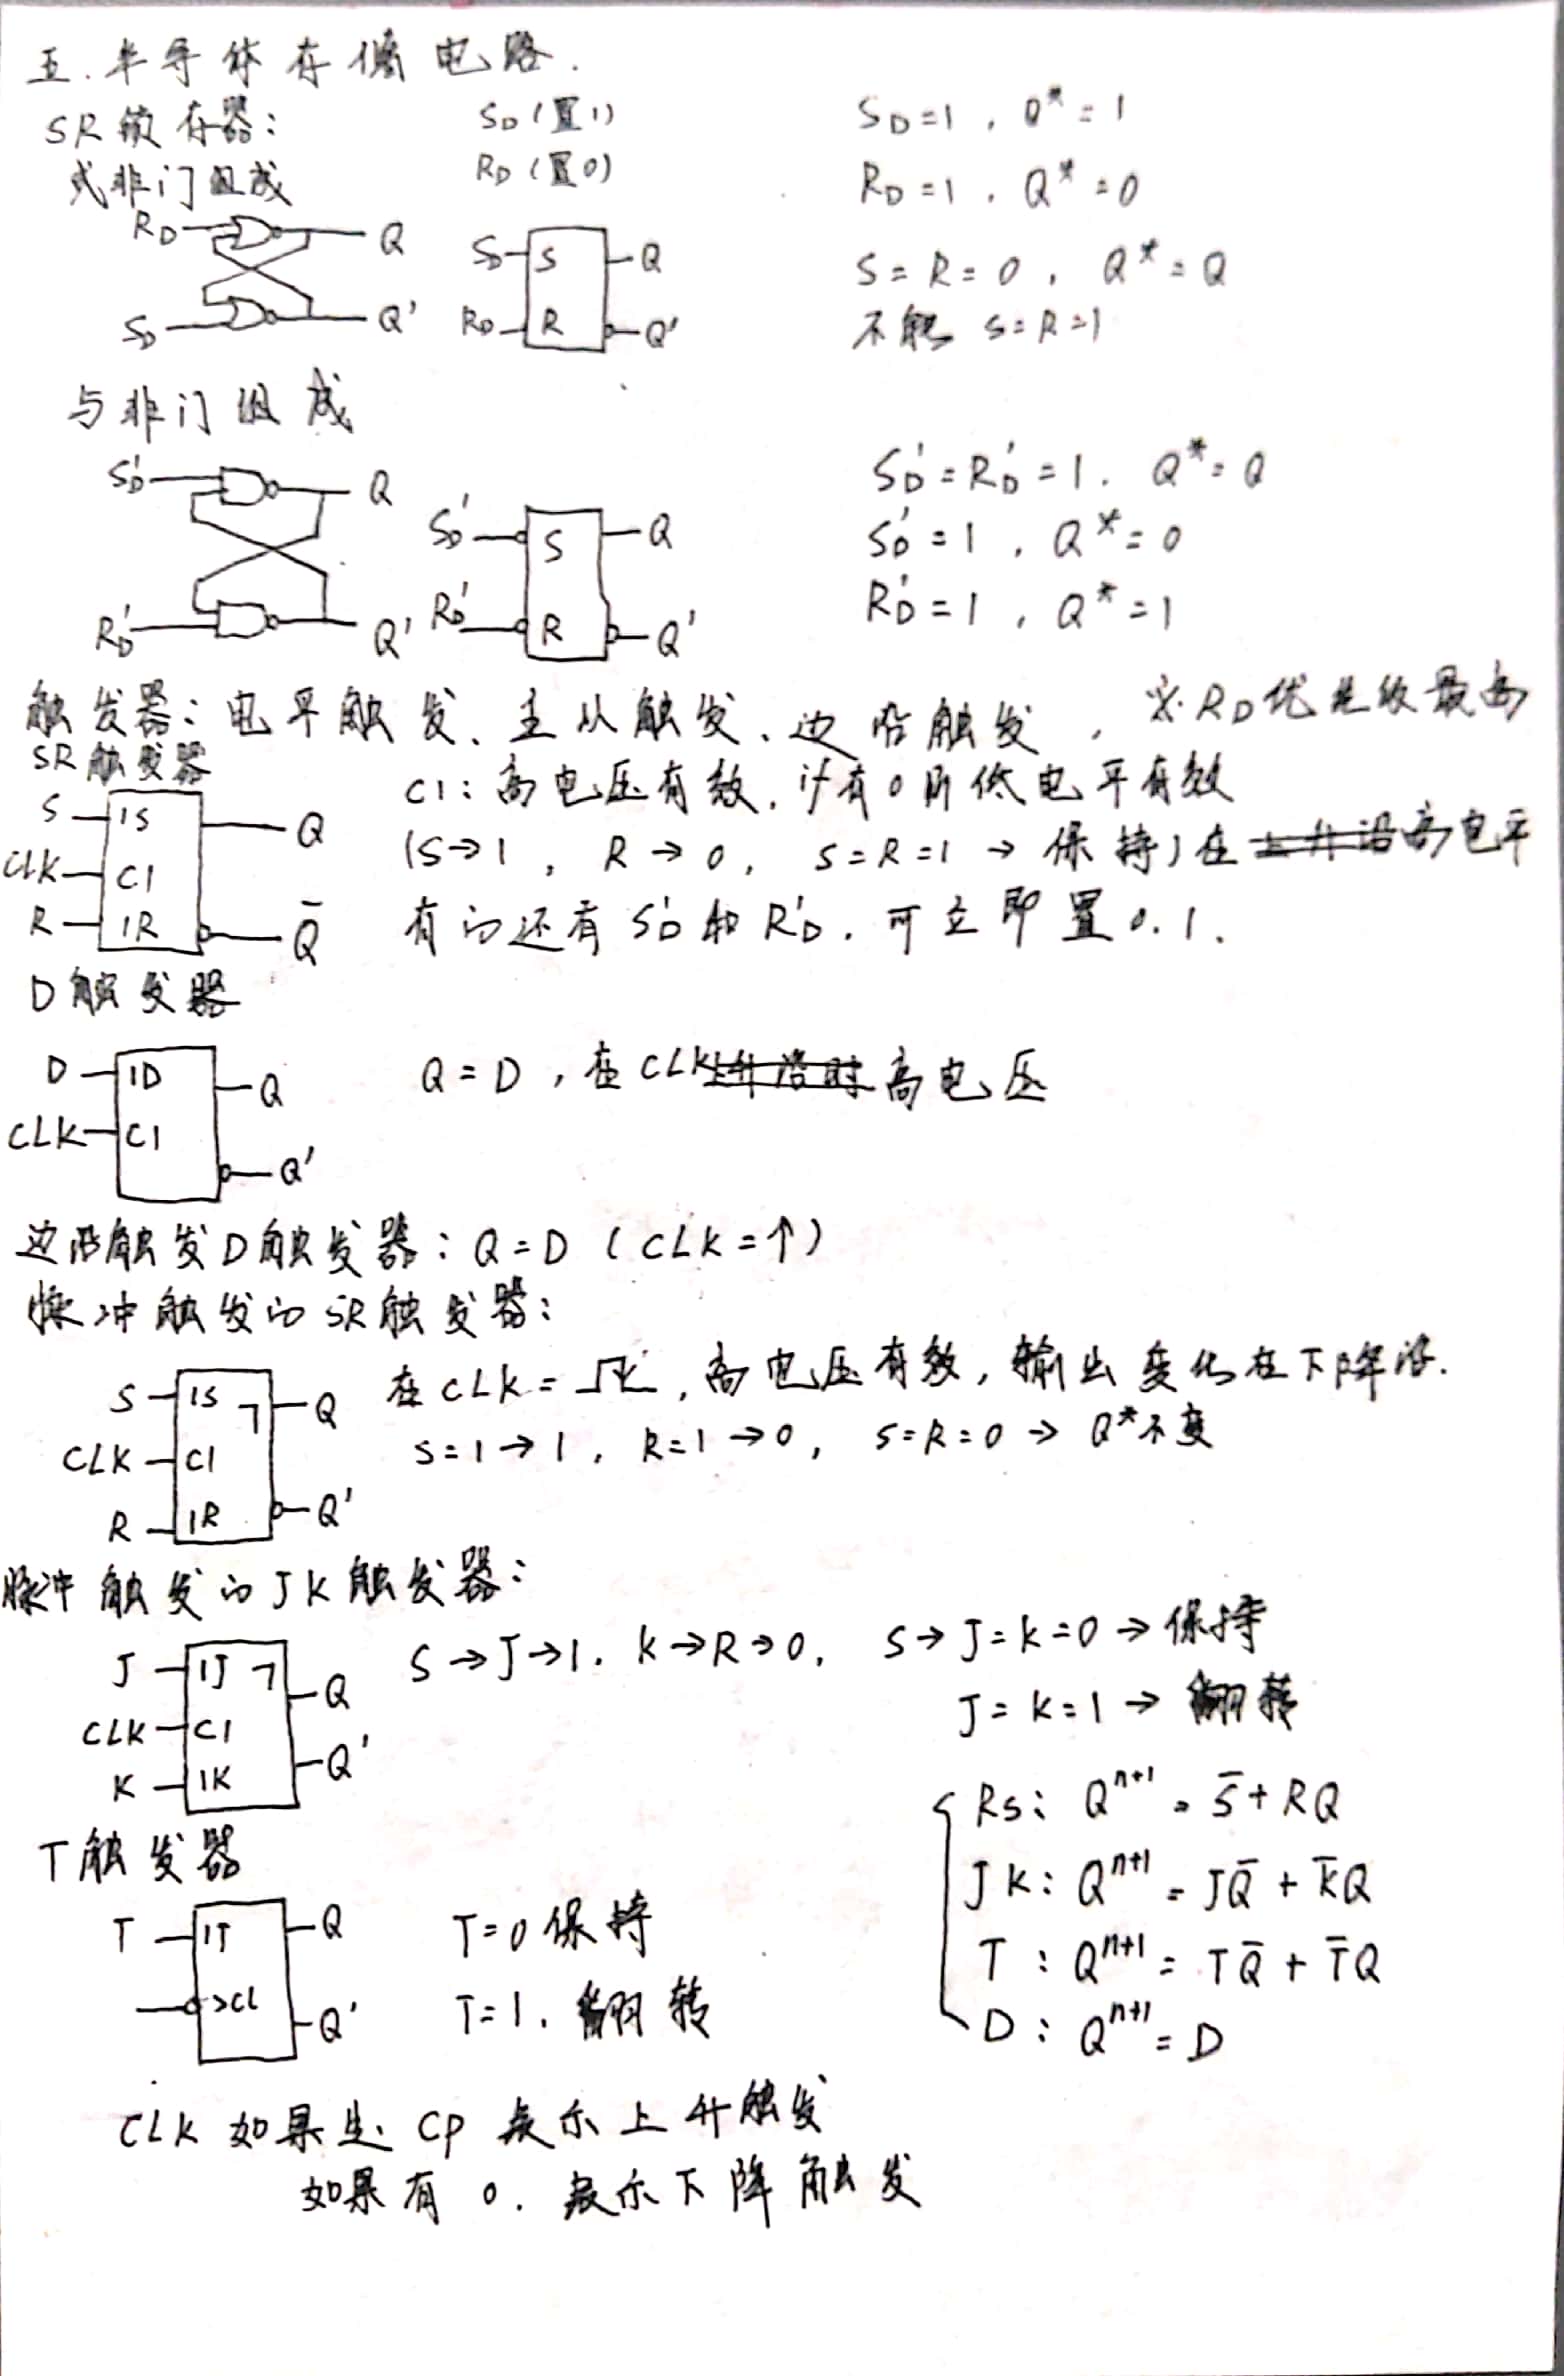 五.半导体存储电路.
SR锁存器: SD(置1) SD=1, Q*=1
或非门组成 RD(置0) RD=1, Q*=0
RD Q SD S Q S=R=0, Q*=Q
SD Q' RD R Q' 不能 S=R=1
与非门组成
SD' Q SD' S Q SD'=RD'=1. Q*=Q
SD'=1, Q*=0
RD' Q' RD' R Q' RD'=1, Q*=1
触发器:电平触发、主从触发、边沿触发, ※RD优先级最高
SR触发器
S 1S Q C1:高电压有效,if有o则低电平有效
CLK C1 (S→1, R→0, S=R=1→保持)在上升沿高电平
R 1R Q̄ 有的还有SD'和RD'.可立即置0.1.
D触发器
D 1D Q Q=D,在CLK上升沿时高电压
CLK C1
Q'
边沿触发D触发器:Q=D(CLK=↑)
脉冲触发的SR触发器:
S 1S ┐ Q 在CLK= ,高电压有效,输出变化在下降沿.
CLK C1 S=1→1, R=1→0, S=R=0→Q*不变
R 1R Q'
脉冲触发的JK触发器:
J 1J ┐ Q S→J→1. K→R→0, S→J=K=0→保持
CLK C1 J=K=1→翻转
K 1K Q'
RS: Qⁿ⁺¹=S̄+RQ
T触发器 JK: Qⁿ⁺¹=JQ̄+K̄Q
T 1T Q T=0保持 T: Qⁿ⁺¹=TQ̄+T̄Q
>C1 Q' T=1.翻转 D: Qⁿ⁺¹=D
CLK如果是CP表示上升触发
如果有o.表示下降触发